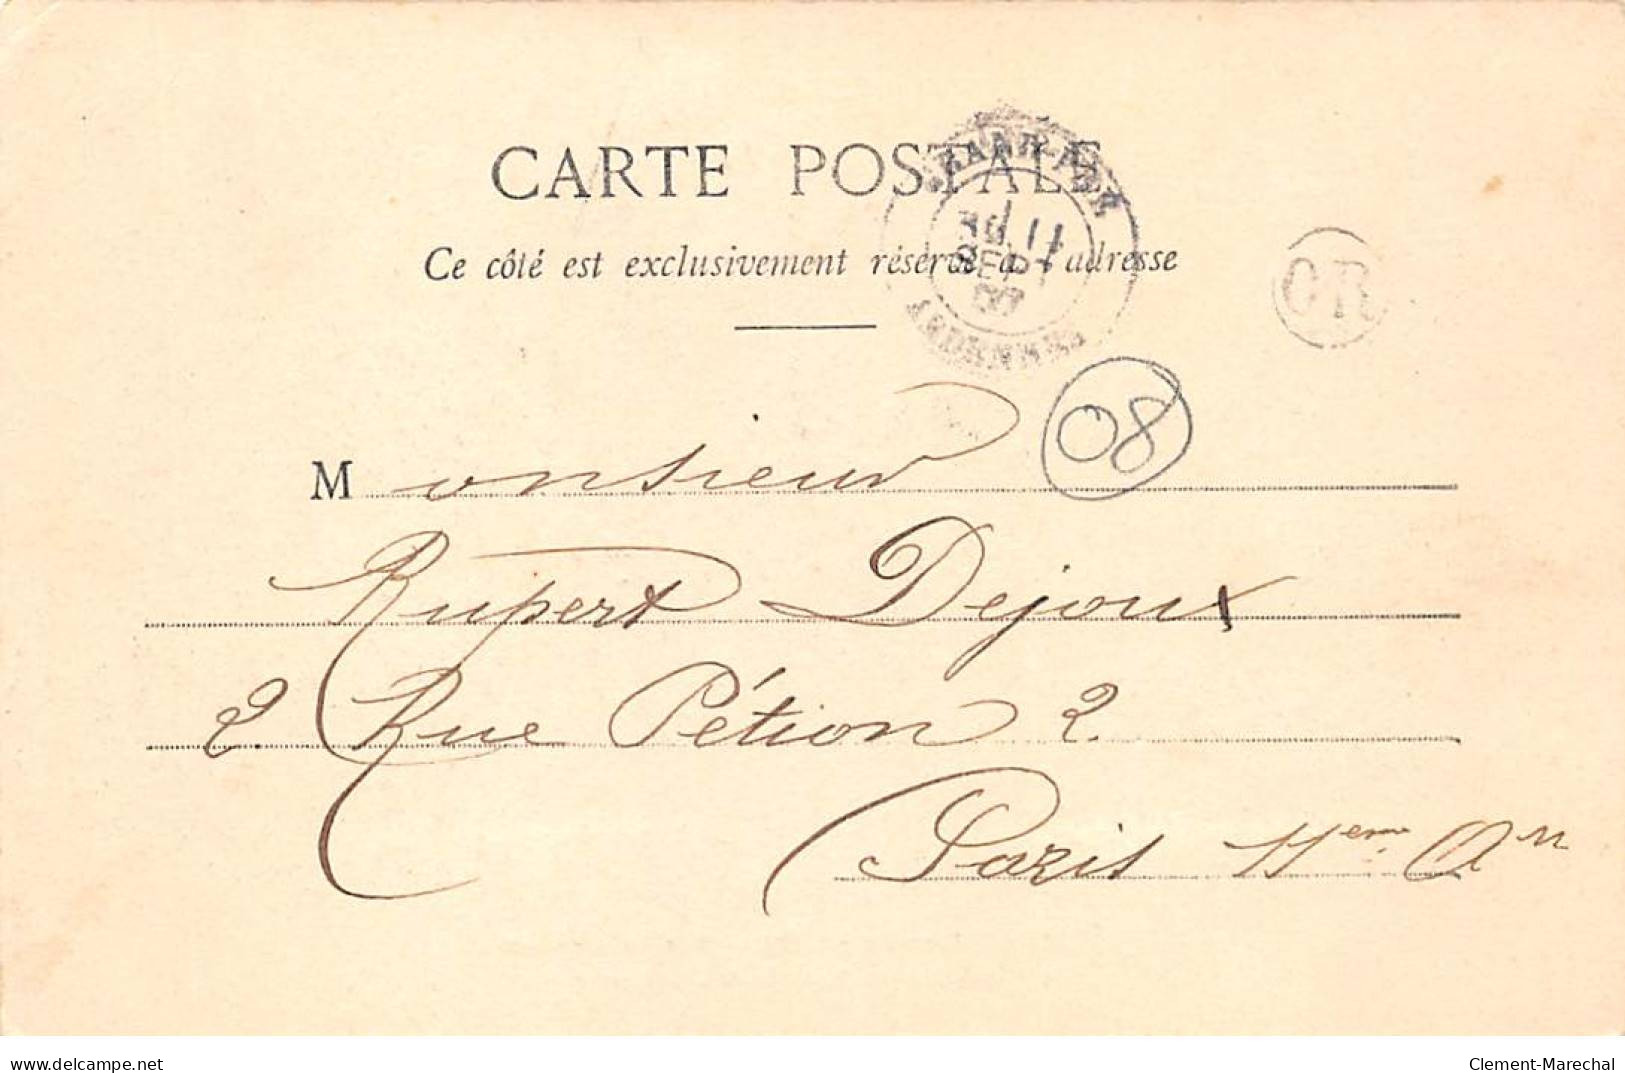 CARTE POSTALE
Ce côté est exclusivement réservé à l'adresse
11
SEPT
ARDENNES
CR
08
Monsieur
Rupert Dejoux
2 Rue Pétion 2.
Paris 11eme Arr
www.delcampe.net
Clement-Marechal